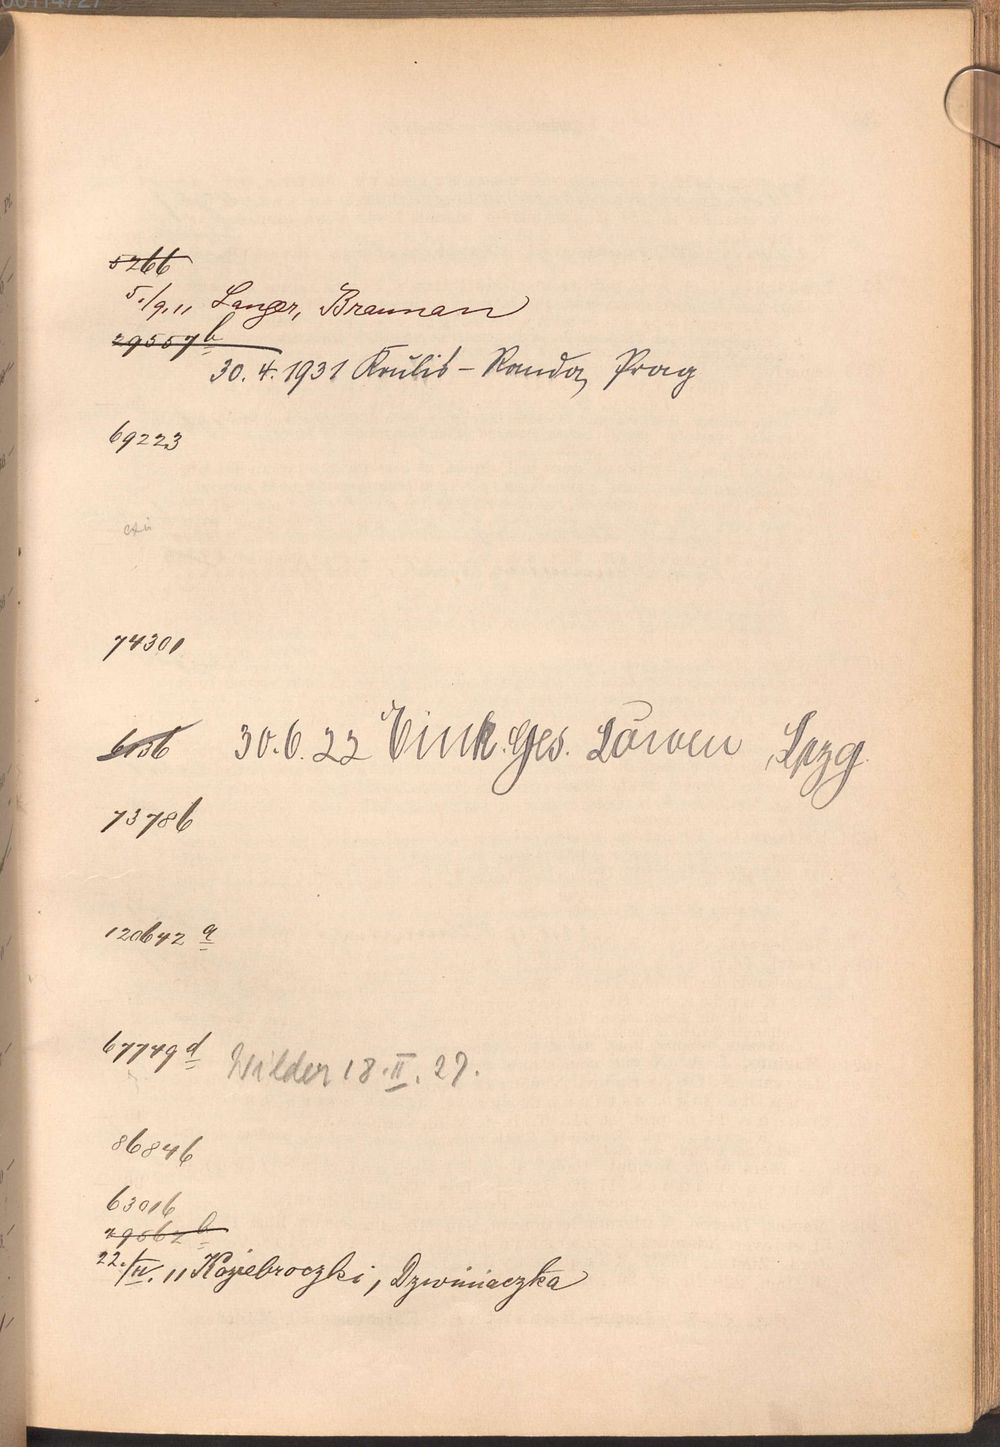 5266
5./9.11 Langer, Braunau
29557 b
30. 4. 1931 Krulis - Randa, Prag
69223
74301
6156
30.6.22 Eink. Ges. Löwen, Lpzg.
73786
120642 a
67749 d Wilder 18.II.27.
86846
63016
29562 b
22./IV. 11 Koziebrodzki, Dzwiniaczka